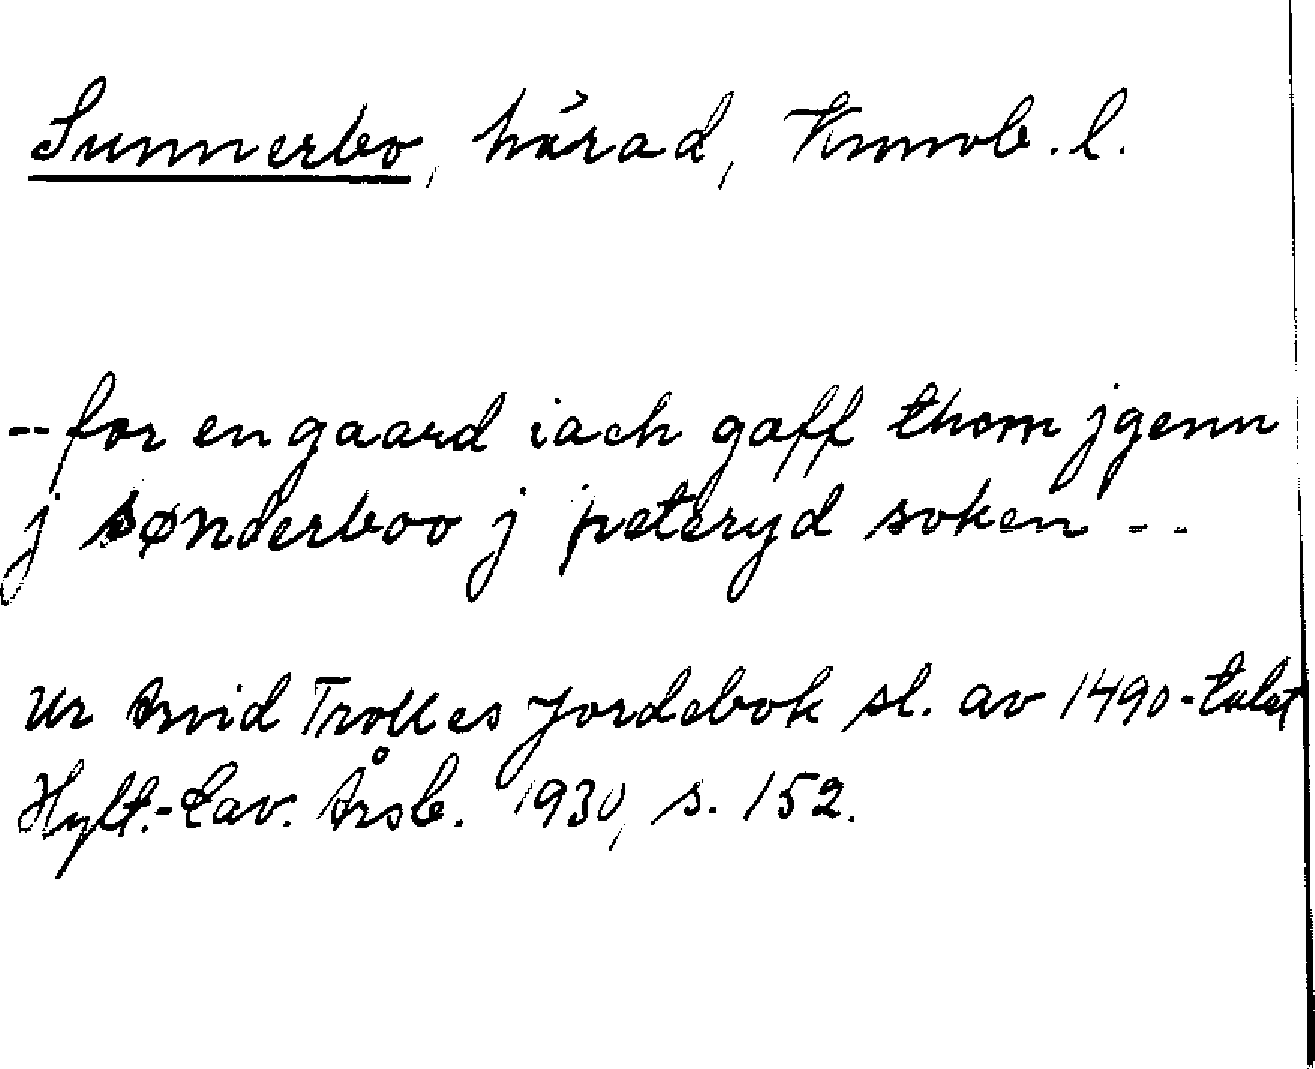 Sunnerbo, härad, Kronob. l.
-- for en gaard iach gaff them jgenn
j sønderboo j peteryd soken --
Ur Arvid Trolles Jordebok sl. av 1490-talet
Hylt.-Cav. Årsb. 1930, s. 152.